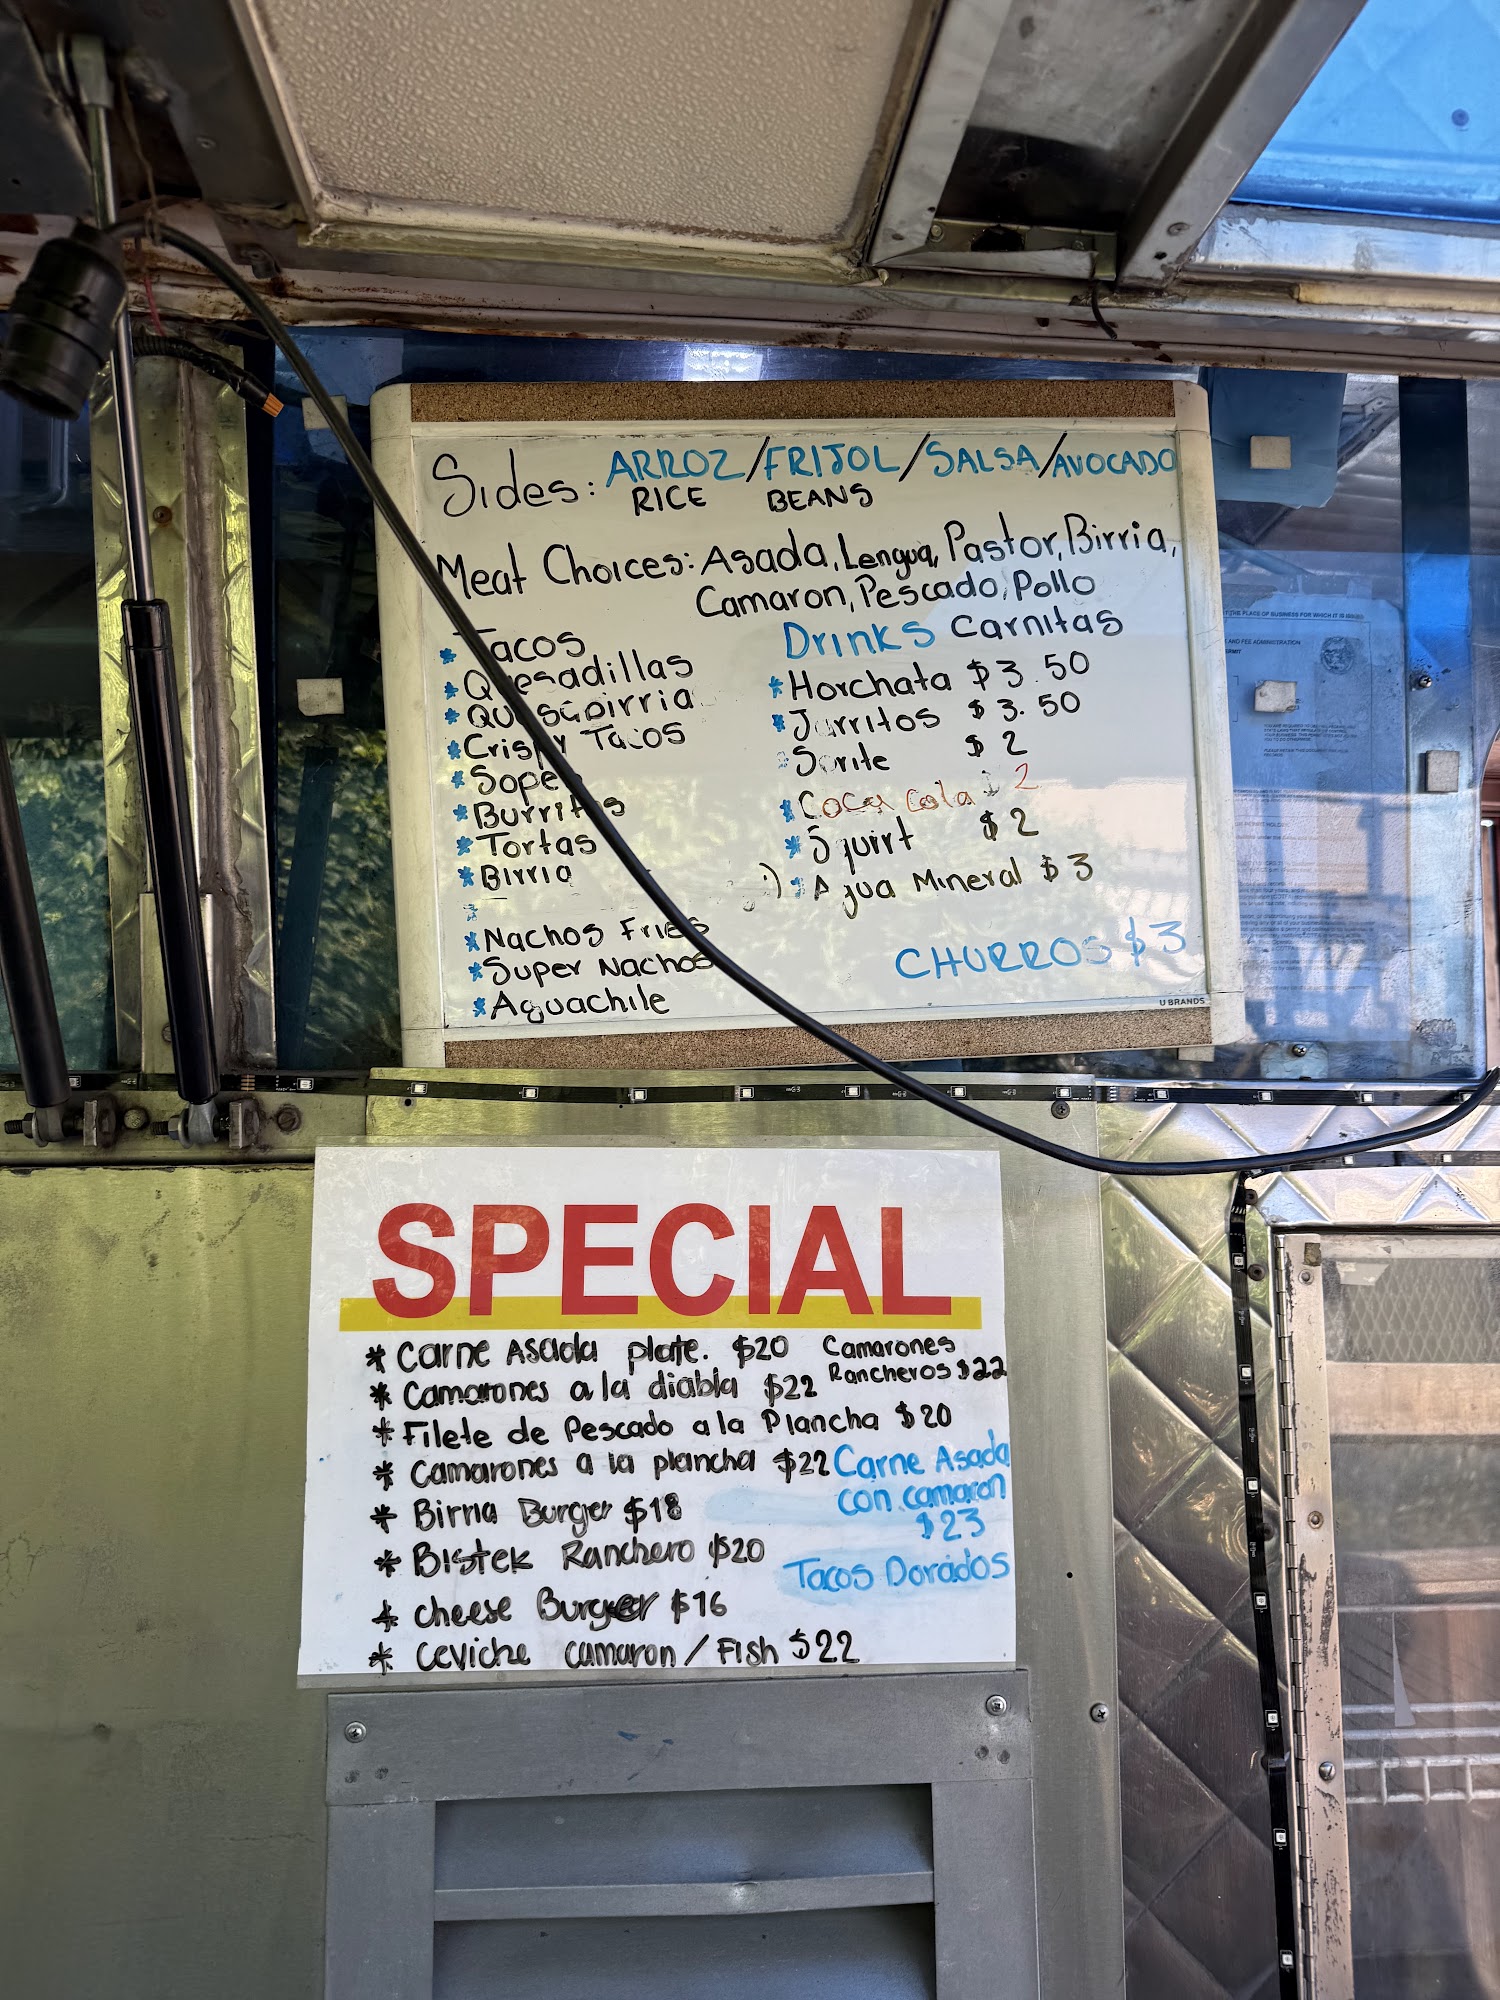 Sides: ARROZ/FRIJOL/SALSA/AVOCADO
RICE BEANS
Meat Choices: Asada, Lengua, Pastor, Birria,
Camaron, Pescado, Pollo
Carnitas
* Tacos
* Quesadillas
* Quesabirria
* Crispy Tacos
* Sopes
* Burritos
* Tortas
* Birria
* Nachos Fries
* Super Nachos
* Aguachile
Drinks
* Horchata $3.50
* Jarritos $3.50
* Sprite $2
* Coca Cola $2
* Squirt $2
* Agua Mineral $3
CHURROS $3
U BRANDS
THE PLACE OF BUSINESS FOR WHICH IT IS ISSUED
AND FEE ADMINISTRATION
SPECIAL
* Carne Asada plate. $20
* Camarones a la diabla $22
* Filete de Pescado a la Plancha $20
* Camarones a la plancha $22
* Birria Burger $18
* Bistek Ranchero $20
* Cheese Burger $16
* Ceviche camaron / Fish $22
Camarones
Rancheros $22
Carne Asada
con camaron
$23
Tacos Dorados